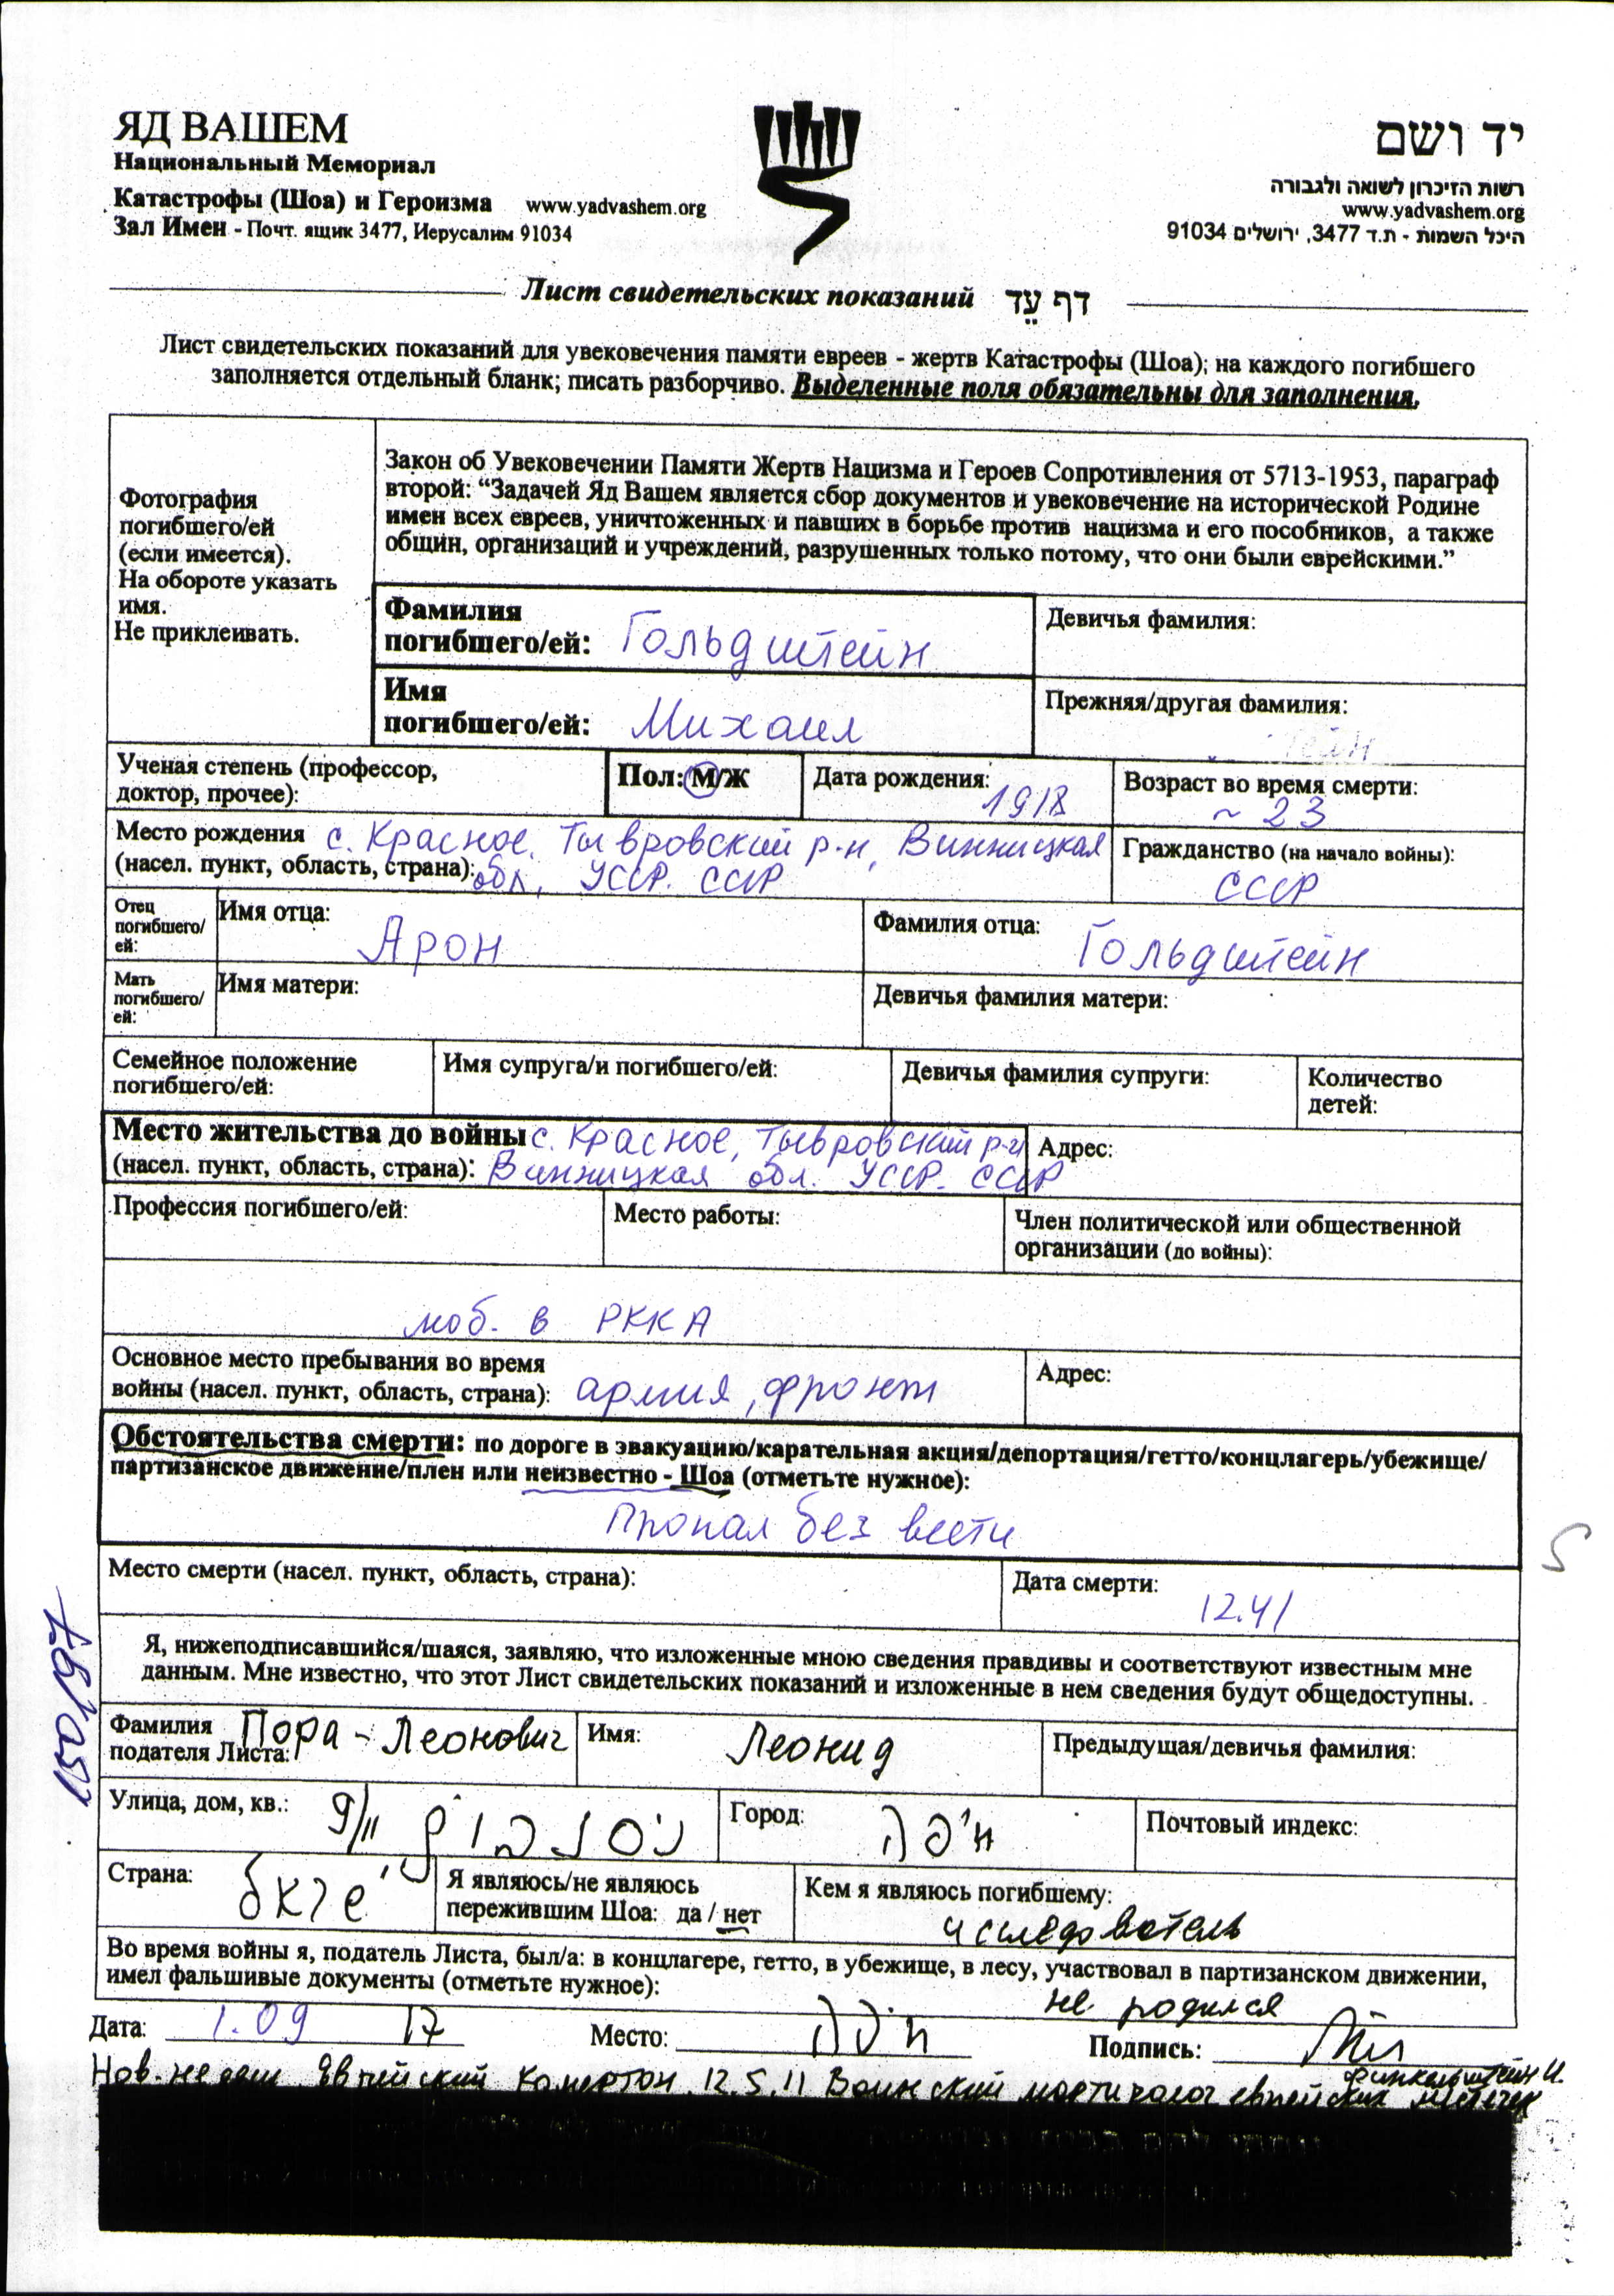 ЯД ВАШЕМ
Национальный Мемориал
Катастрофы (Шоа) и Героизма www.yadvashem.org
Зал Имен - Почт. ящик 3477, Иерусалим 91034
יד ושם
רשות הזיכרון לשואה ולגבורה
www.yadvashem.org
היכל השמות - ת.ד 3477, ירושלים 91034
Лист свидетельских показаний דף עֵד
Лист свидетельских показаний для увековечения памяти евреев - жертв Катастрофы (Шоа); на каждого погибшего
заполняется отдельный бланк; писать разборчиво. Выделенные поля обязательны для заполнения.
Фотография
погибшего/ей
(если имеется).
На обороте указать
имя.
Не приклеивать.
Закон об Увековечении Памяти Жертв Нацизма и Героев Сопротивления от 5713-1953, параграф
второй: “Задачей Яд Вашем является сбор документов и увековечение на исторической Родине
имен всех евреев, уничтоженных и павших в борьбе против нацизма и его пособников, а также
общин, организаций и учреждений, разрушенных только потому, что они были еврейскими.”
Фамилия
погибшего/ей: Гольдштейн
Девичья фамилия:
Имя
погибшего/ей: Михаил
Прежняя/другая фамилия:
Ученая степень (профессор,
доктор, прочее):
Пол: М/Ж
Дата рождения: 1918
Возраст во время смерти:
~ 23
Место рождения с. Красное, Тывровский р-н, Винницкая
(насел. пункт, область, страна): обл, УССР. СССР
Гражданство (на начало войны):
СССР
Отец
погибшего/
ей:
Имя отца: Арон
Фамилия отца: Гольдштейн
Мать
погибшего/
ей:
Имя матери:
Девичья фамилия матери:
Семейное положение
погибшего/ей:
Имя супруга/и погибшего/ей:
Девичья фамилия супруги:
Количество
детей:
Место жительства до войны с. Красное, Тывровский р-н
(насел. пункт, область, страна): Винницкая обл. УССР. СССР
Адрес:
Профессия погибшего/ей:
Место работы:
Член политической или общественной
организации (до войны):
моб. в РККА
Основное место пребывания во время
войны (насел. пункт, область, страна): армия, фронт
Адрес:
Обстоятельства смерти: по дороге в эвакуацию/карательная акция/депортация/гетто/концлагерь/убежище/
партизанское движение/плен или неизвестно - Шоа (отметьте нужное):
Пропал без вести
5
Место смерти (насел. пункт, область, страна):
Дата смерти:
12.41
150197
Я, нижеподписавшийся/шаяся, заявляю, что изложенные мною сведения правдивы и соответствуют известным мне
данным. Мне известно, что этот Лист свидетельских показаний и изложенные в нем сведения будут общедоступны.
Фамилия
подателя Листа: Пора - Леонович
Имя: Леонид
Предыдущая/девичья фамилия:
Улица, дом, кв.: 9/11
Город: חיפה
Почтовый индекс:
Страна:
Я являюсь/не являюсь
пережившим Шоа: да / нет
Кем я являюсь погибшему:
исследователь
Во время войны я, податель Листа, был/а: в концлагере, гетто, в убежище, в лесу, участвовал в партизанском движении,
имел фальшивые документы (отметьте нужное):
не родился
Дата: 1.09 17 Место: חיפה Подпись:
Финкельштейн И.
Нов. неделя Еврейский Камертон 12.5.11 Воинский мартиролог еврейских местечек